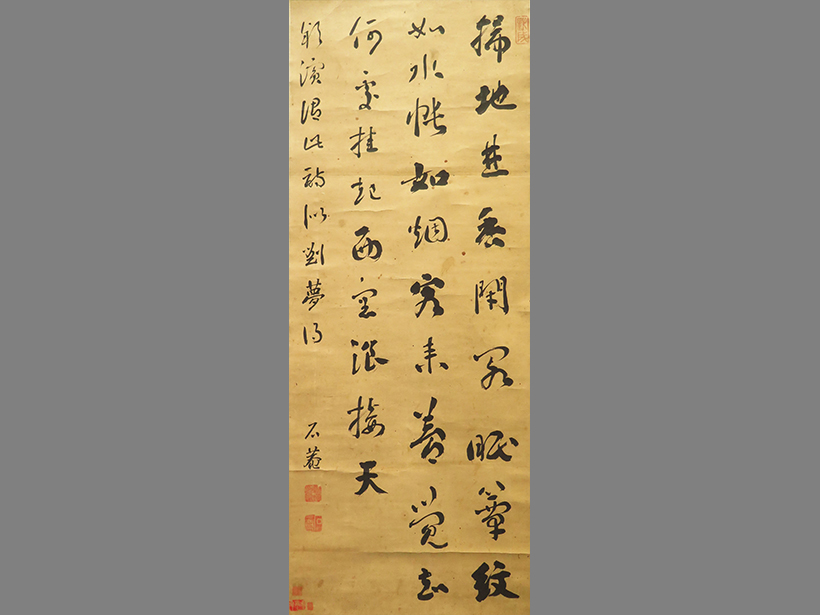 掃地焚香閉閣眠簟紋
如水帳如烟客來夢覺知
何處挂起西窗浪接天
此詩似劉夢得
石菴